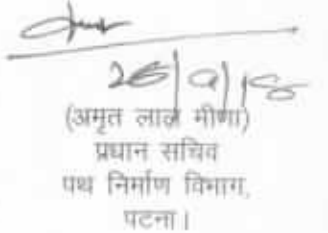 (अमृत लाल मीणा)
प्रधान सचिव
पथ निर्माण विभाग,
पटना।